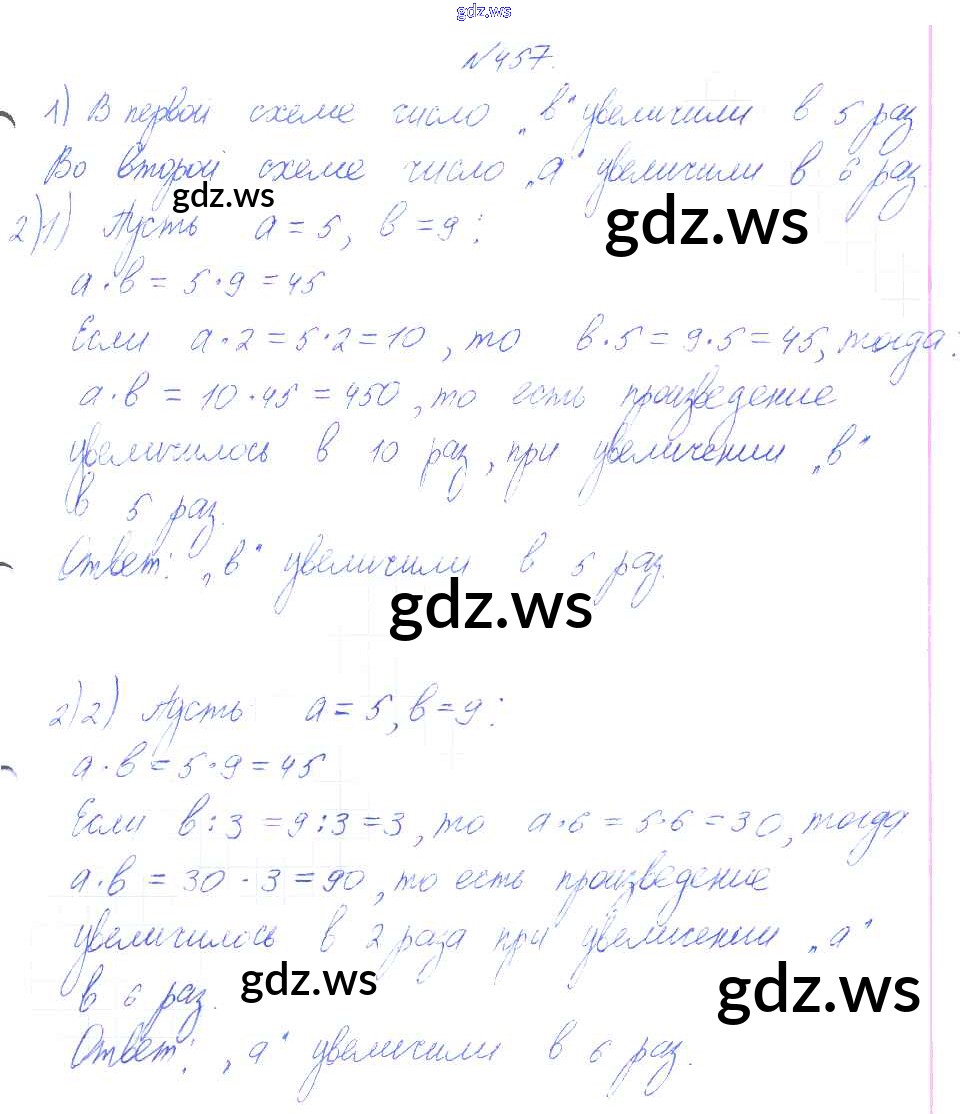 gdz.ws
№457.
1) В первой схеме число „в“ увеличили в 5 раз
Во второй схеме число „а“ увеличили в 6 раз.
gdz.ws
gdz.ws
2)1) Пусть а = 5, в = 9:
а · в = 5 · 9 = 45
Если а · 2 = 5 · 2 = 10, то в · 5 = 9 · 5 = 45, тогда:
а · в = 10 · 45 = 450, то есть произведение
увеличилось в 10 раз, при увеличении „в“
в 5 раз.
Ответ: „в“ увеличили в 5 раз.
gdz.ws
2)2) Пусть а = 5, в = 9:
а · в = 5 · 9 = 45
Если в : 3 = 9 : 3 = 3, то а · 6 = 5 · 6 = 30, тогда
а · в = 30 · 3 = 90, то есть произведение
увеличилось в 2 раза при увеличении „а“
в 6 раз.
gdz.ws
gdz.ws
Ответ: „а“ увеличили в 6 раз.